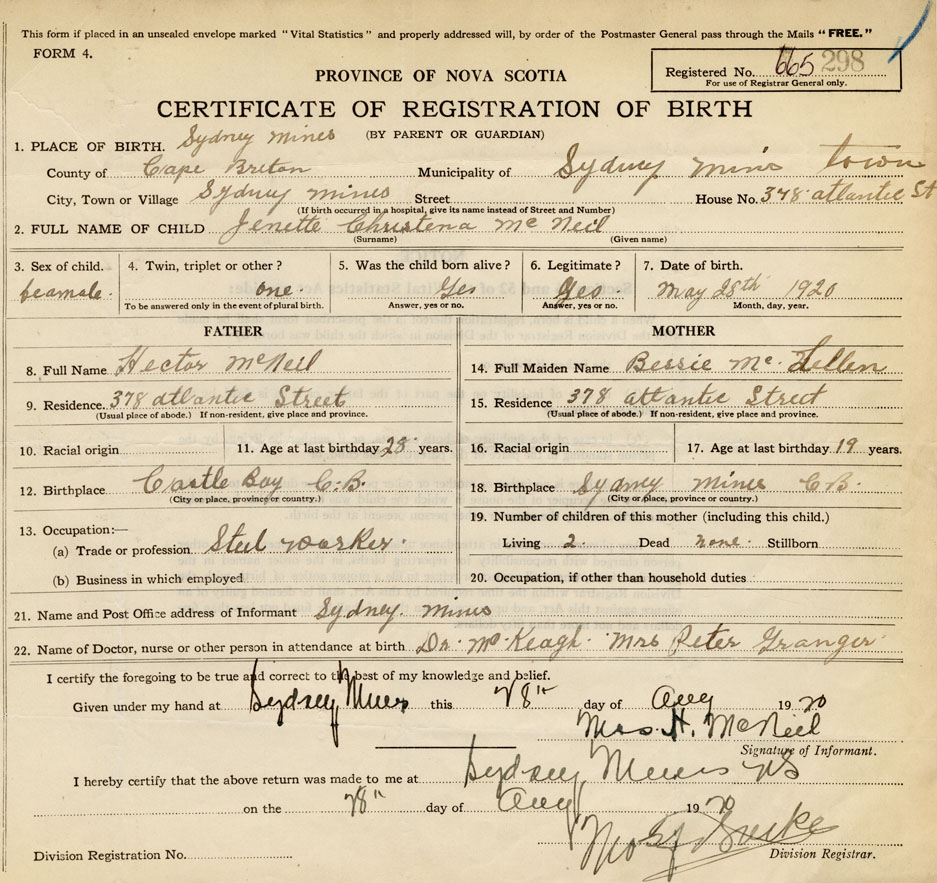 This form if placed in an unsealed envelope marked "Vital Statistics" and properly addressed will, by order of the Postmaster General pass through the Mails "FREE."
FORM 4.
Registered No. 665 298
For use of Registrar General only.
PROVINCE OF NOVA SCOTIA
CERTIFICATE OF REGISTRATION OF BIRTH
(BY PARENT OR GUARDIAN)
1. PLACE OF BIRTH. Sydney mines
County of Cape Breton Municipality of Sydney mins town
City, Town or Village Sydney mines Street House No. 378 atlantic St
(If birth occurred in a hospital, give its name instead of Street and Number)
2. FULL NAME OF CHILD Jenette Christena Mc Neil
(Surname) (Given name)
3. Sex of child. 4. Twin, triplet or other? 5. Was the child born alive? 6. Legitimate? 7. Date of birth.
feamale one Yes Yes May 28th 1920
To be answered only in the event of plural birth. Answer, yes or no. Answer, yes or no. Month, day, year.
FATHER MOTHER
8. Full Name Hector McNeil 14. Full Maiden Name Bessie Mc
9. Residence 378 atlantic Street 15. Residence 378 attantic Street
(Usual place of abode.) If non-resident, give place and province. (Usual place of abode.) If non-resident, give place and province.
10. Racial origin 11. Age at last birthday years. 16. Racial origin 17. Age at last birthday 19 years.
12. Birthplace Castle Bay C.B. 18. Birthplace Sydney mines C B.
(City or place, province or country.) (City or place, province or country.)
13. Occupation:— 19. Number of children of this mother (including this child.)
(a) Trade or profession Steel worker Living 2 Dead none Stillborn
(b) Business in which employed 20. Occupation, if other than household duties
21. Name and Post Office address of Informant Sydney mines
22. Name of Doctor, nurse or other person in attendance at birth Dr McKeagh Mrs Peter Granger
I certify the foregoing to be true and correct to the best of my knowledge and belief.
Given under my hand at Sydney Mines this 28th day of Aug 1920
Mrs. H. McNeil
Signature of Informant.
I hereby certify that the above return was made to me at Sydney Mines NS
on the 28th day of Aug 1920
Burke
Division Registration No. Division Registrar.